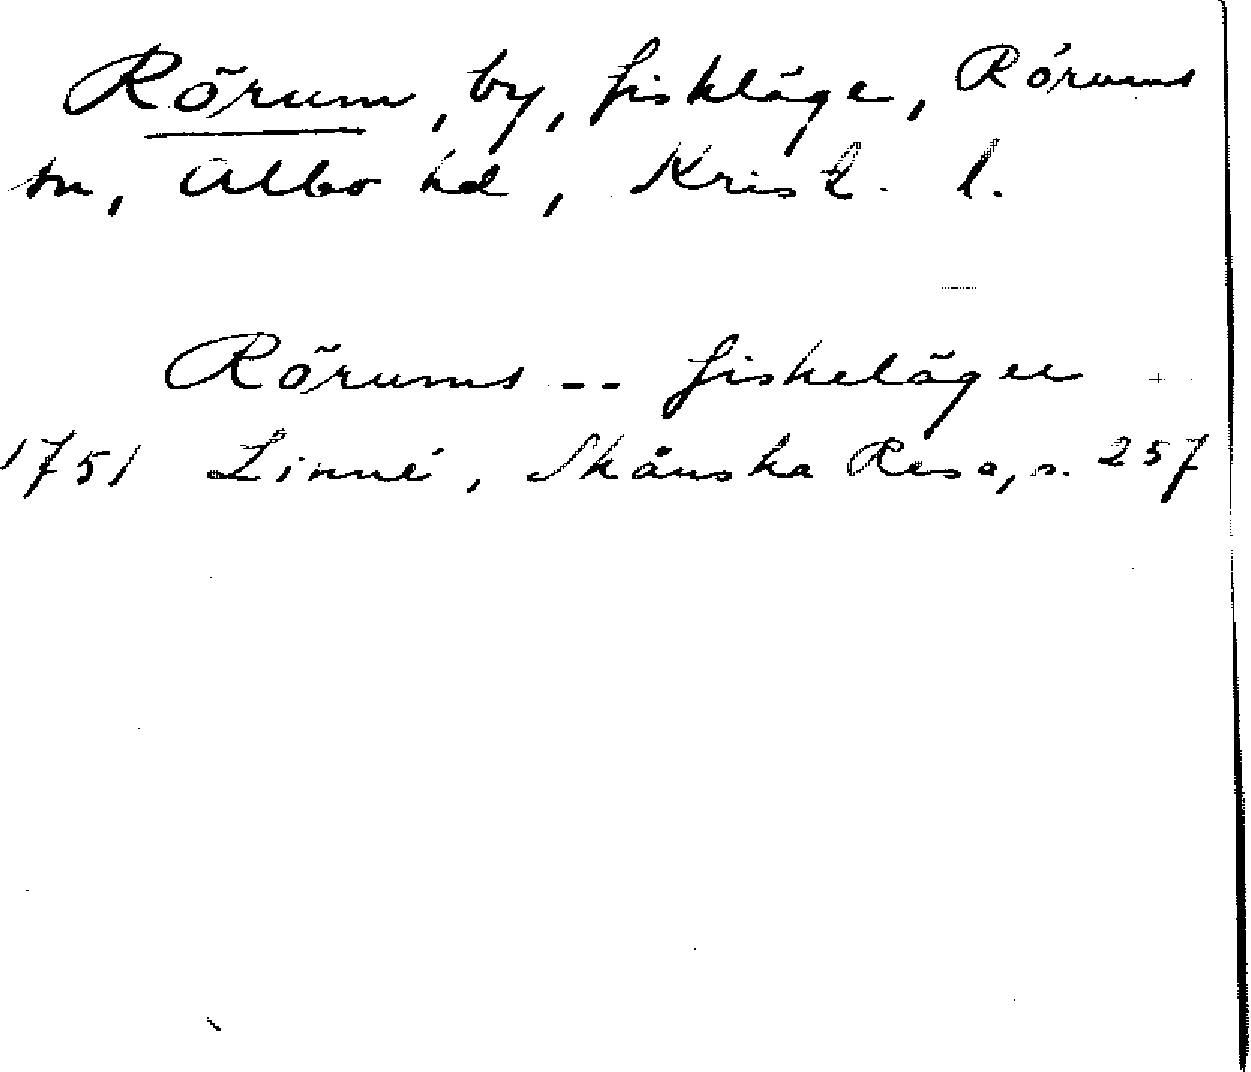 Rörum, by, fiskläge, Rörums
sn, Albo hd, Krist. l.
Rörums -- fiskeläger
1751 Linné, Skånska Resa, s. 257